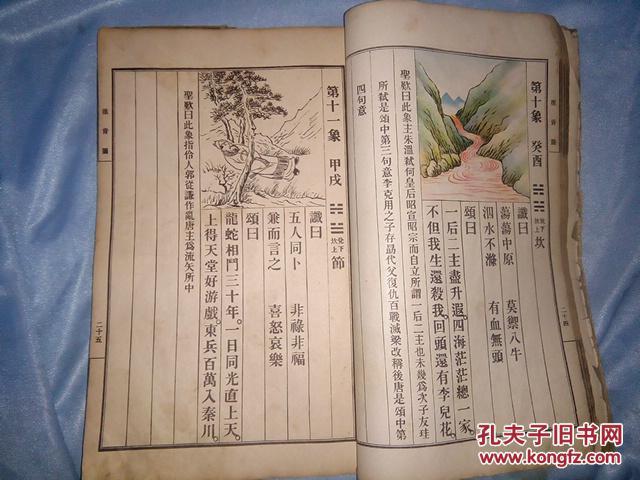 第十象 癸酉 坎 坎下 坎上
讖曰
蕩蕩中原 莫禦八牛
泗水不滌 有血無頭
頌曰
一后二主盡升遐。四海茫茫總一家。
不但我生還殺我。回頭還有李兒花。
聖歎曰此象主朱溫弒何皇后昭宣昭宗而自立所謂一后二主也未幾爲次子友珪
所弒是頌中第三句意李克用之子存勗代父復仇百戰滅梁改稱後唐是頌中第
四句意
推背圖
二十四
第十一象 甲戌 兌下 坎上 節
讖曰
五人同卜 非祿非福
兼而言之 喜怒哀樂
頌曰
龍蛇相鬥三十年。一日同光直上天。
上得天堂好游戲。東兵百萬入秦川。
聖歎曰此象指伶人郭從謙作亂唐主爲流矢所中
推背圖
二十五
孔夫子旧书网
www.kongfz.com